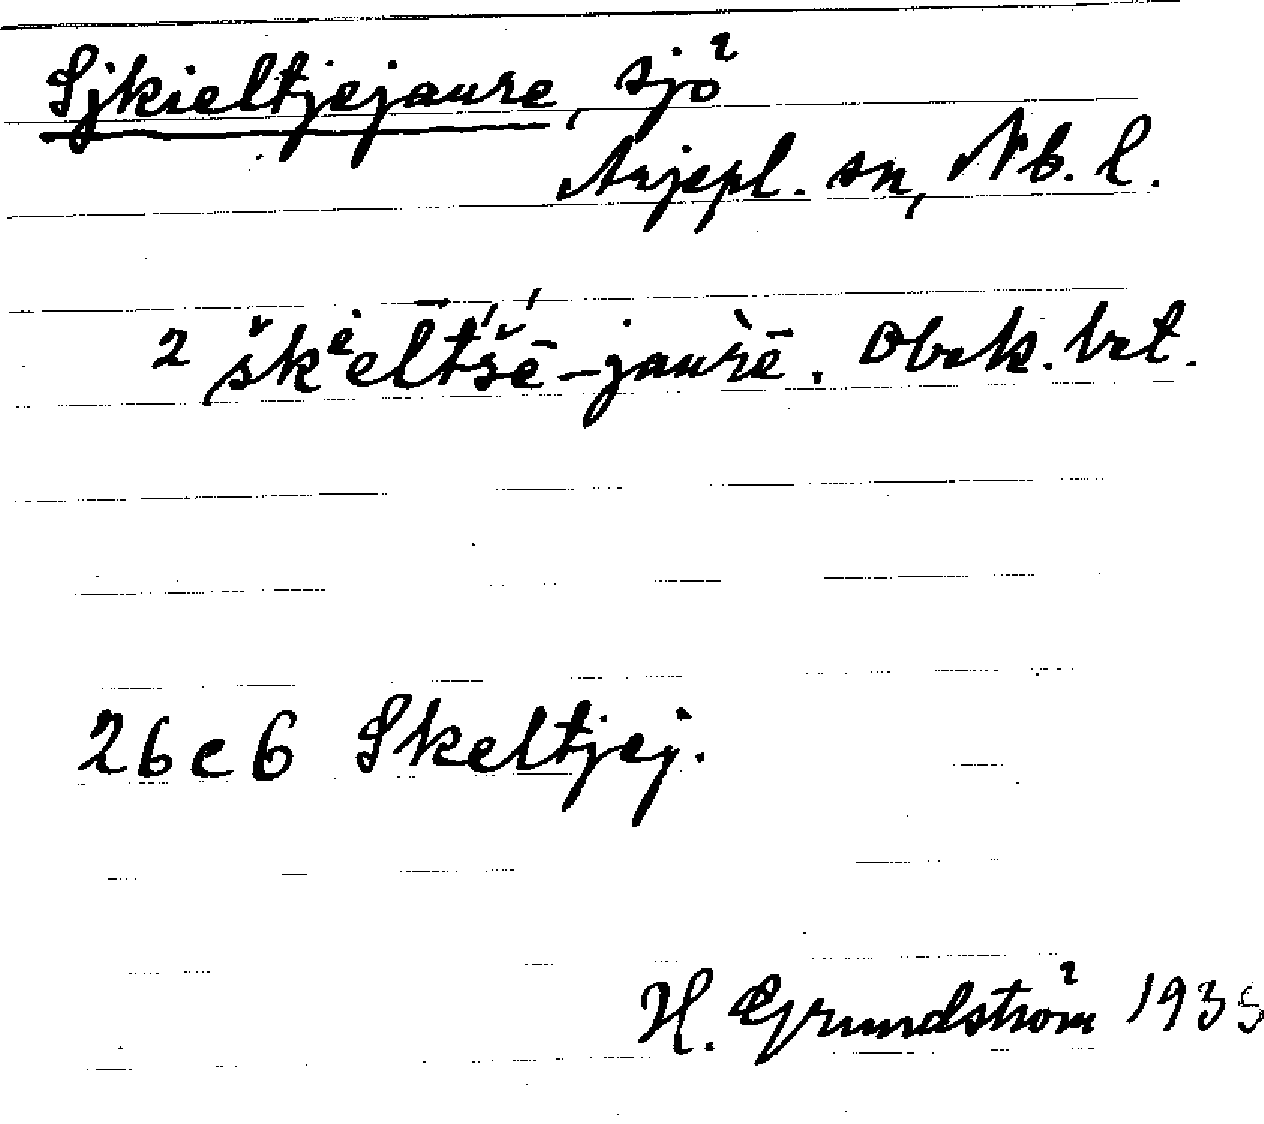 Sjkieltjejaure, sjö
Arjepl. sn, Nb. l.
2 šk͕ēl̄t́š́ē-jaùrē. Obek. bet.
26 c 6 Skeltjej.
H. Grundström 1935